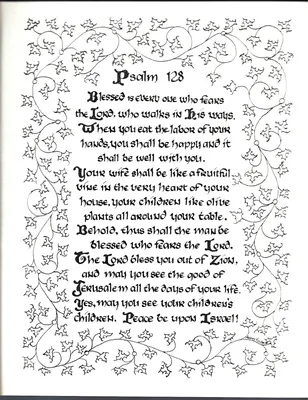 Psalm 128
Blessed is every one who fears
the Lord, who walks in His ways.
When you eat the labor of your
hands, you shall be happy and it
shall be well with you.
Your wife shall be like a fruitful
vine in the very heart of your
house, your children like olive
plants all around your table.
Behold, thus shall the man be
blessed who fears the Lord.
The Lord bless you out of Zion,
and may you see the good of
Jerusalem all the days of your life.
Yes, may you see your children's
children. Peace be upon Israel!